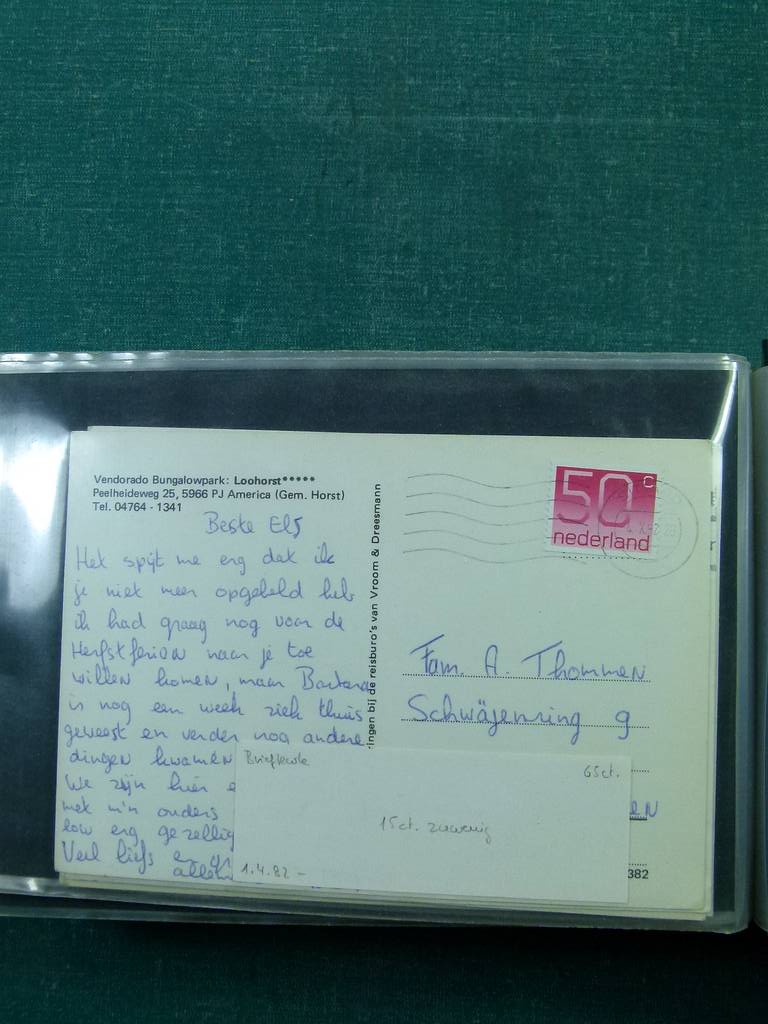 Vendorado Bungalowpark: Loohorst*****
Peelheideweg 25, 5966 PJ America (Gem. Horst)
Tel. 04764 - 1341
Beste Els
Het spijt me erg dat ik
je niet meer opgebeld heb
ik had graag nog voor de
Herfstferien naar je toe
willen komen, maar Barbara
is nog een week ziek thuis
geweest en verder nog andere
dingen kwamen
We zijn hier
met m'n ouders
erg gezellig
Veel liefs
allem
ingen bij de reisburo's van Vroom & Dreesmann
50 c
nederland
Fam. A. Thommen
Schwäjenring 9
en
382
Briefkarte
65ct.
15ct. zuwenig
1.4.82 -